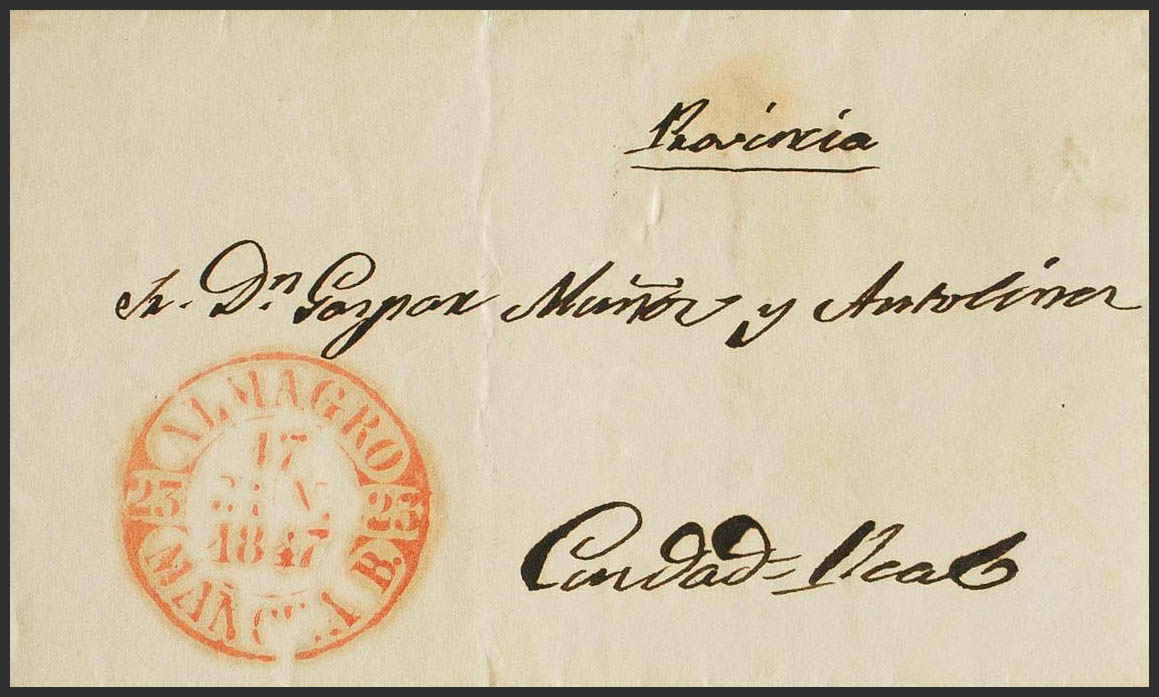 Provincia
Sr. Dn. Gaspar Muñoz y Antolinez
ALMAGRO
17
1847
25 25
MANCHA B.
Ciudad-Real